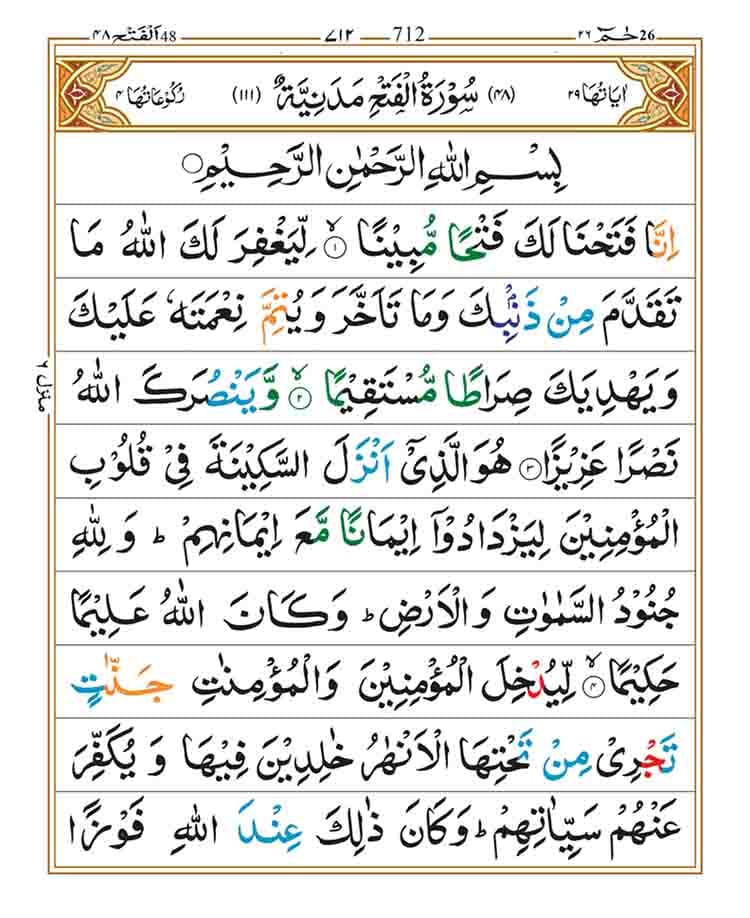 حٰمٓ 26 ٢٦ 712 ٧١٢ اَلْفَتْح 48 ٤٨
اٰيَاتُهَا ٢٩ (٤٨) سُوْرَةُ الْفَتْحِ مَدَنِيَّةٌ (١١١) رُكُوْعَاتُهَا ٤
بِسْمِ اللّٰهِ الرَّحْمٰنِ الرَّحِيْمِ ○
اِنَّا فَتَحْنَا لَكَ فَتْحًا مُّبِيْنًا ۙ‏﴿١﴾ لِّيَغْفِرَ لَكَ اللّٰهُ مَا
تَقَدَّمَ مِنْ ذَنْۢبِكَ وَمَا تَاَخَّرَ وَيُتِمَّ نِعْمَتَهٗ عَلَيْكَ
وَيَهْدِيَكَ صِرَاطًا مُّسْتَقِيْمًا ۙ‏﴿٢﴾ وَّيَنْصُرَكَ اللّٰهُ
نَصْرًا عَزِيْزًا ﴿٣﴾ هُوَ الَّذِيْۤ اَنْزَلَ السَّكِيْنَةَ فِيْ قُلُوْبِ
الْمُؤْمِنِيْنَ لِيَزْدَادُوْۤا اِيْمَانًا مَّعَ اِيْمَانِهِمْ ؕ وَلِلّٰهِ
جُنُوْدُ السَّمٰوٰتِ وَالْاَرْضِ ؕ وَكَانَ اللّٰهُ عَلِيْمًا
حَكِيْمًا ۙ‏﴿٤﴾ لِّيُدْخِلَ الْمُؤْمِنِيْنَ وَالْمُؤْمِنٰتِ جَنّٰتٍ
تَجْرِيْ مِنْ تَحْتِهَا الْاَنْهٰرُ خٰلِدِيْنَ فِيْهَا وَيُكَفِّرَ
عَنْهُمْ سَيِّاٰتِهِمْ ؕ وَكَانَ ذٰلِكَ عِنْدَ اللّٰهِ فَوْزًا
منزل ٦